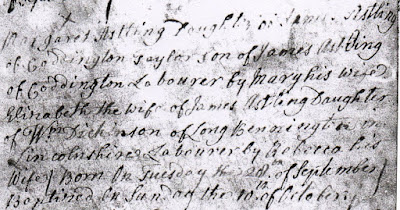 Margaret Astling Daughter of James Astling
of Coddington Taylor son of James Astling
of Coddington Labourer by Mary his wife &
Elizabeth the wife of James Astling Daughter
of Wm Dickinson of Long Bennington in
Lincolnshire Labourer by Rebecca his
Wife Born on Tuesday the of September
Baptized on Sunday the 10th of October